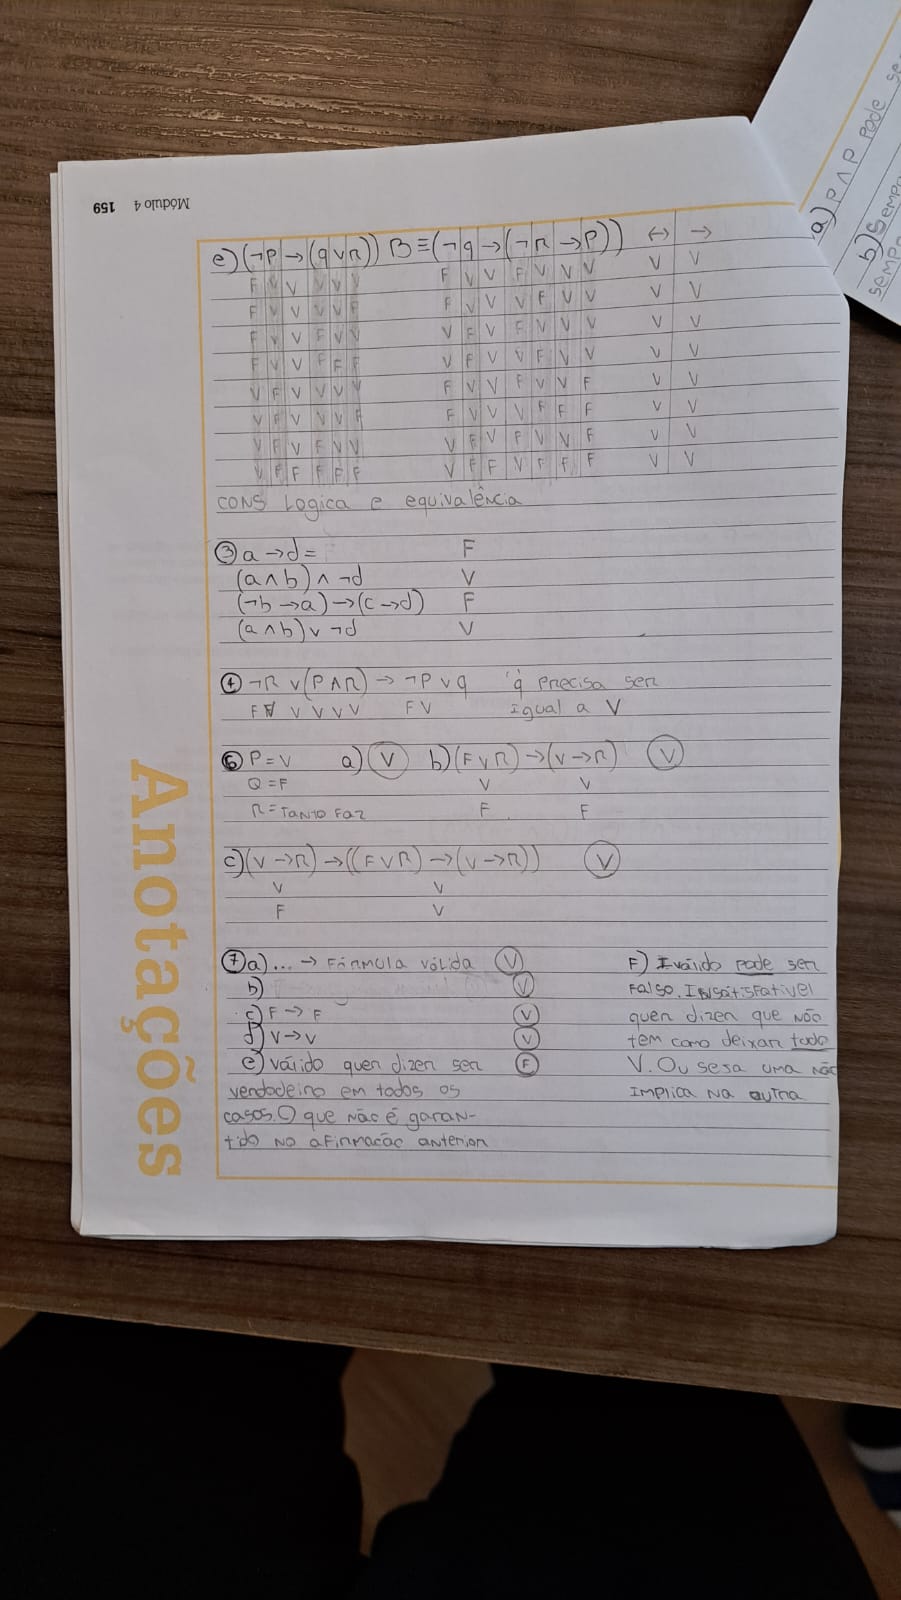 Módulo 4 159
a) P ∧ P pode se
b) Sempr
sempr
e) (¬P → (q ∨ R)) B ≡ (¬q → (¬R → P)) ↔ →
F V V V V V F V V F V V V V V
F V V V V F F V V V F V V V V
F V V F V V V F V F V V V V V
F V V F F F V F V V F V V V V
V F V V V V F V V F V V F V V
V F V V V F F V V V F F F V V
V F V F V V V F V F V V F V V
V F F F F F V F F V F F F V V
CONS Logica e equivalência
③ a → d = F
(a ∧ b) ∧ ¬d V
(¬b → a) → (c → d) F
(a ∧ b) ∨ ¬d V
④ ¬R ∨ (P ∧ R) → ¬P ∨ q q precisa ser
F V V V V F V igual a V
⑥ P = V a) V b) (F ∨ R) → (V → R) V
Q = F V V
R = TANTO FAZ F F
c) (V → R) → ((F ∨ R) → (V → R)) V
V V
F V
⑦ a) ... → Fórmula válida V
b) V
c) F → F V
d) V → V V
e) válido quer dizer ser F
verdadeiro em todos os
casos. O que não é garan-
tido no afirmação anterior
F) Iválido pode ser
falso. Insatisfatível
quer dizer que não
tem como deixar tudo
V. Ou seja uma não
implica na outra
Anotações